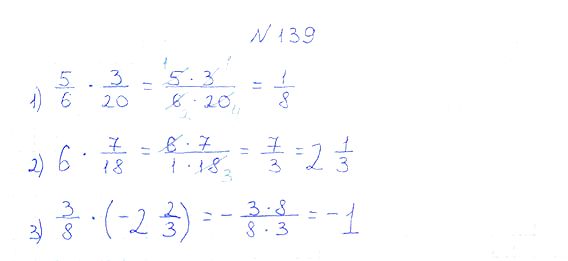 N 139
1) 5/6 · 3/20 = 5 · 3 / 6 · 20 = 1/8
2) 6 · 7/18 = 6 · 7 / 1 · 18 = 7/3 = 2 1/3
3) 3/8 · (-2 2/3) = - 3 · 8 / 8 · 3 = -1